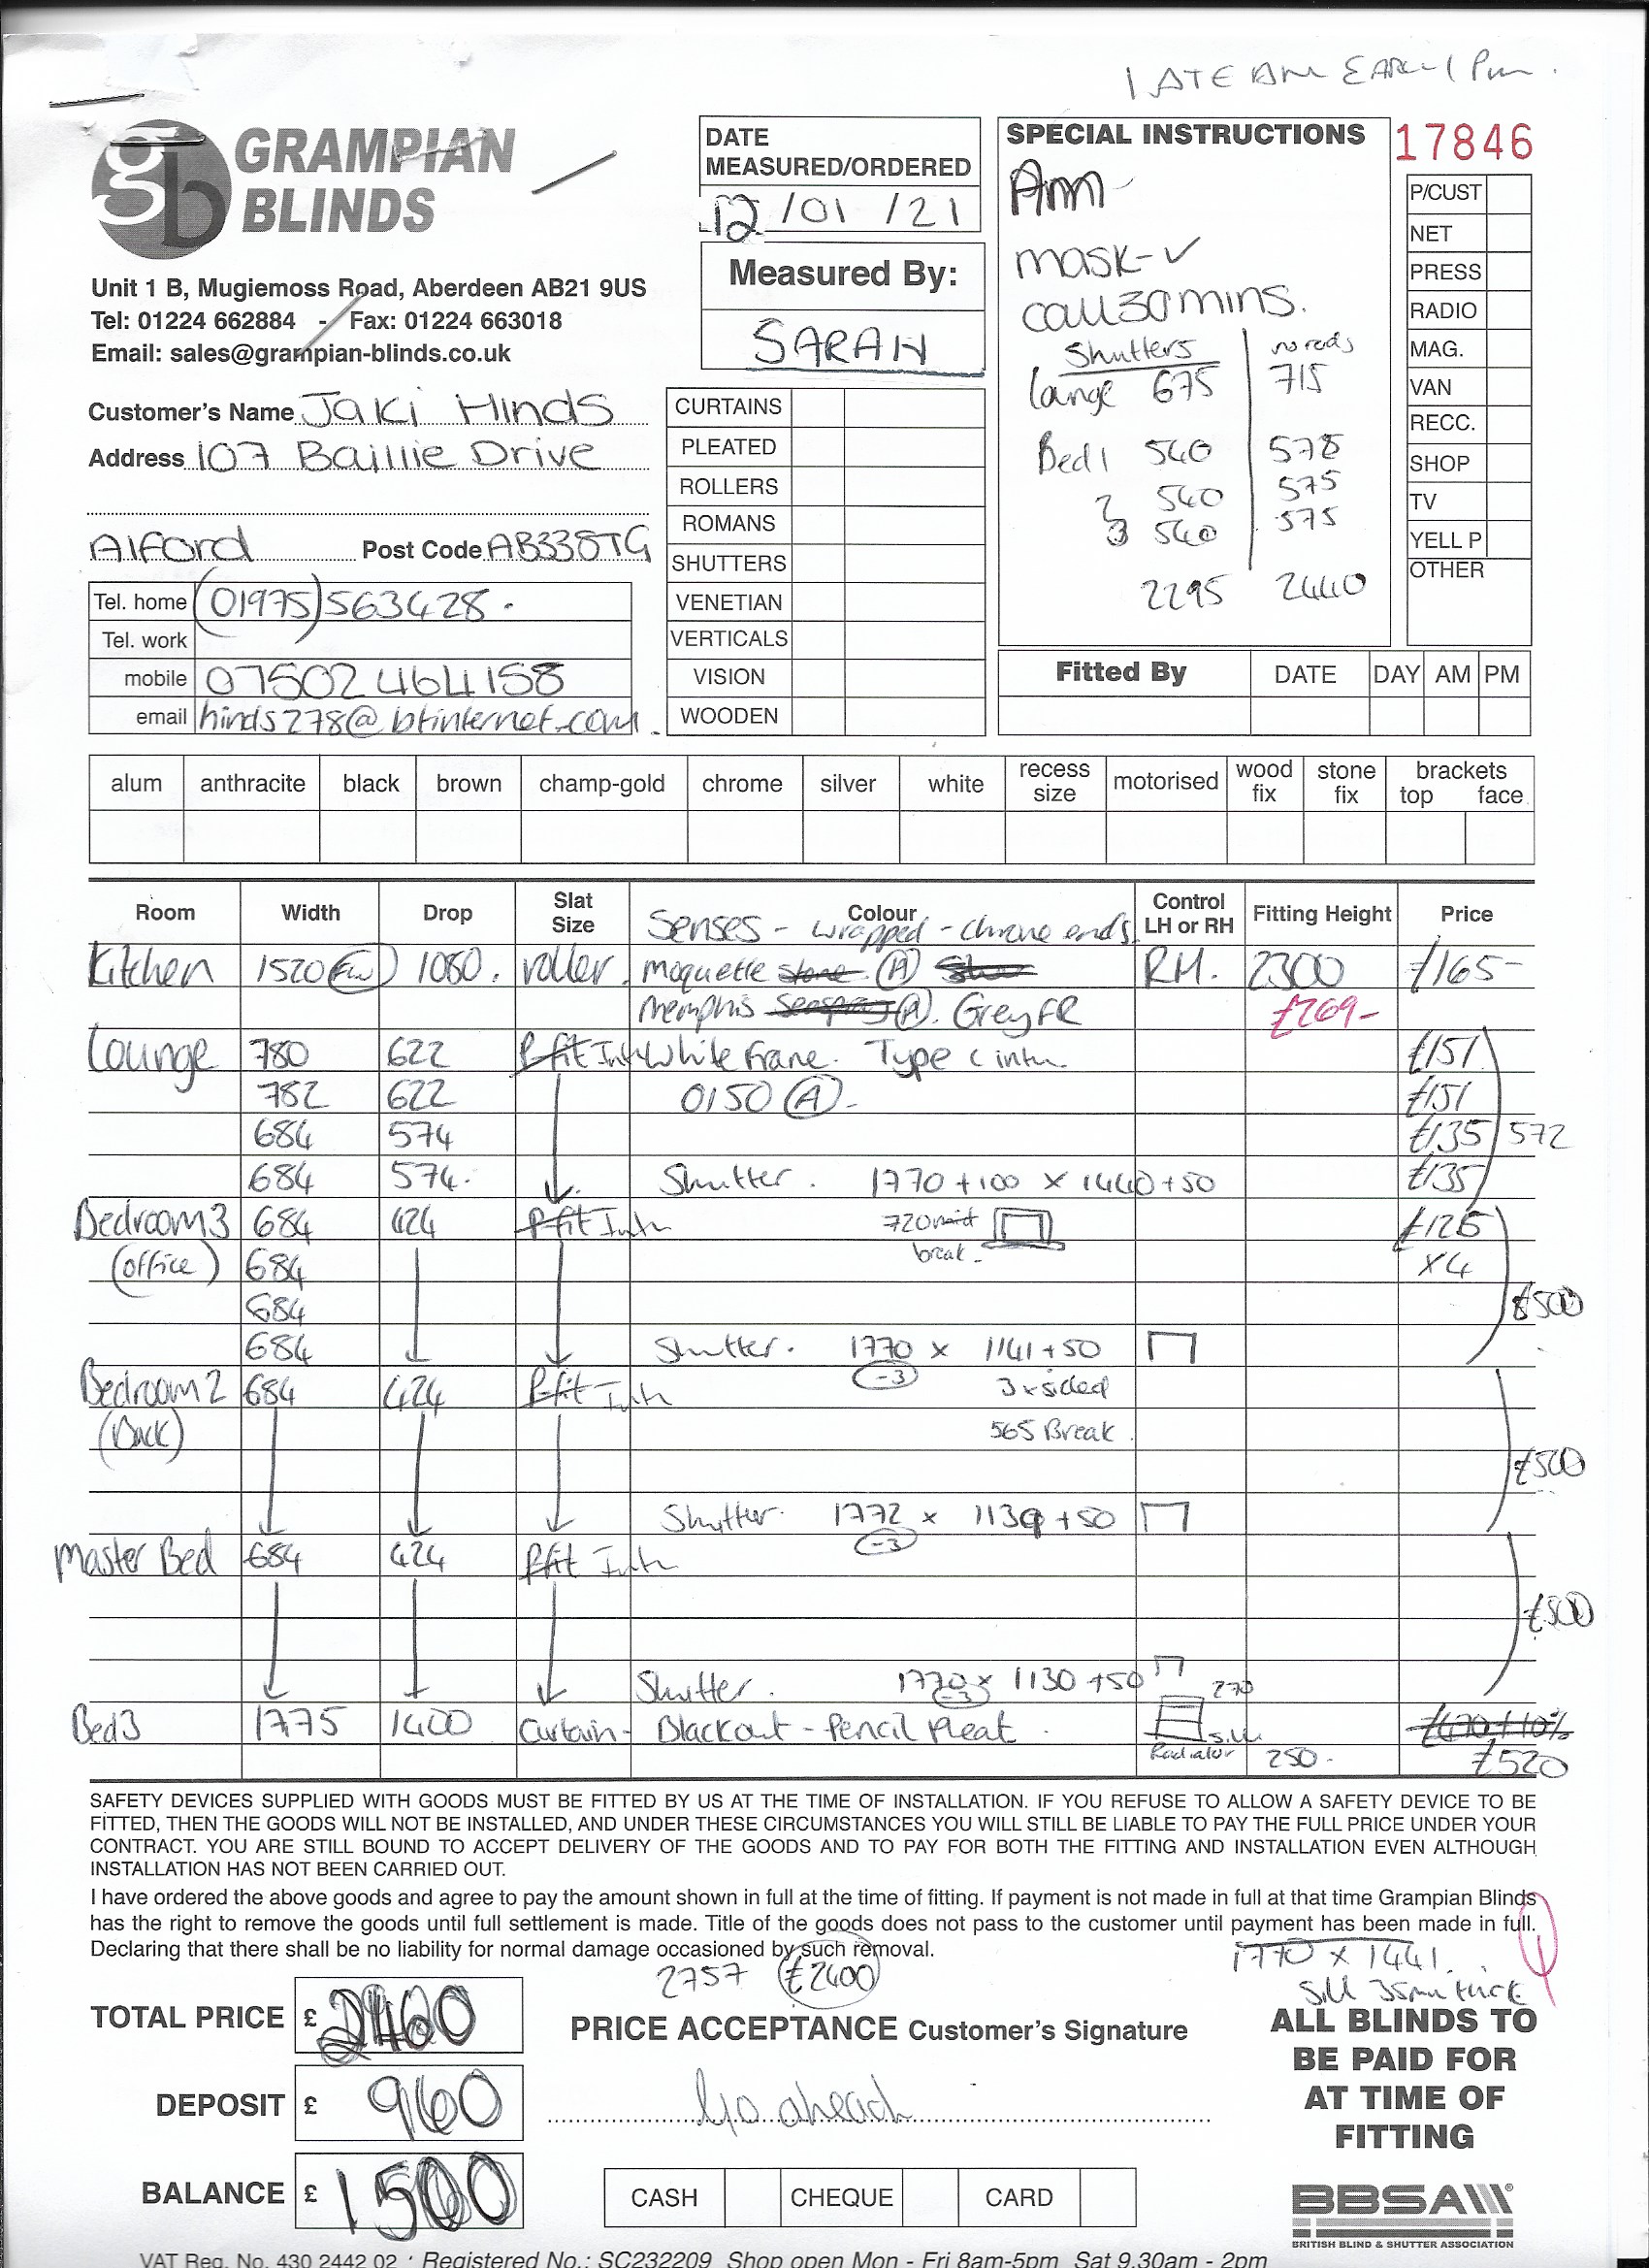 LATE AM EARLY PM.
GRAMPIAN
BLINDS
Unit 1 B, Mugiemoss Road, Aberdeen AB21 9US
Tel: 01224 662884 - Fax: 01224 663018
Email: sales@grampian-blinds.co.uk
Customer's Name Jaki Hinds
Address 107 Baillie Drive
Alford Post Code AB338TG
Tel. home (01975) 563428.
Tel. work
mobile 07502464158
email hinds278@btinternet.com.
DATE
MEASURED/ORDERED
12/01/21
Measured By:
SARAH
CURTAINS
PLEATED
ROLLERS
ROMANS
SHUTTERS
VENETIAN
VERTICALS
VISION
WOODEN
SPECIAL INSTRUCTIONS
Am
mask-✓
call 30 mins.
Shutters no rads
lounge 675 715
Bed 1 540 578
2 540 575
3 540 575
2295 2440
17846
P/CUST
NET
PRESS
RADIO
MAG.
VAN
RECC.
SHOP
TV
YELL P
OTHER
Fitted By DATE DAY AM PM
alum anthracite black brown champ-gold chrome silver white recess size motorised wood fix stone fix brackets top face
Room Width Drop Slat Size Colour Control LH or RH Fitting Height Price
Senses - wrapped - chrome ends
Kitchen 1520 1080. roller. moquette stone (A) RH. 2300 £165-
Memphis (A). Grey FR £269-
Lounge 780 622 Pfit Intu White frame. Type c intu £151
782 622 0150 (A)- £151
684 574 £135 572
684 574. Shutter. 1770 + 100 x 1440 + 50 £135
Bedroom 3 684 424 Pfit Intu 720 mid £125
(office) 684 break. x4
684 £500
684 Shutter. 1770 x 1141 + 50
Bedroom 2 684 424 Pfit Intu -3 3 x sided
(Back) 565 Break.
£500
Shutter. 1772 x 1139 + 50
-3
Master Bed 684 424 Pfit Intu
£500
Shutter. 1770 x 1130 + 50
-3 270
Bed 3 1775 1400 Curtain- Blackout - Pencil Pleat. sill £470 + 10%
Radiator 250. £520
SAFETY DEVICES SUPPLIED WITH GOODS MUST BE FITTED BY US AT THE TIME OF INSTALLATION. IF YOU REFUSE TO ALLOW A SAFETY DEVICE TO BE
FITTED, THEN THE GOODS WILL NOT BE INSTALLED, AND UNDER THESE CIRCUMSTANCES YOU WILL STILL BE LIABLE TO PAY THE FULL PRICE UNDER YOUR
CONTRACT. YOU ARE STILL BOUND TO ACCEPT DELIVERY OF THE GOODS AND TO PAY FOR BOTH THE FITTING AND INSTALLATION EVEN ALTHOUGH
INSTALLATION HAS NOT BEEN CARRIED OUT.
I have ordered the above goods and agree to pay the amount shown in full at the time of fitting. If payment is not made in full at that time Grampian Blinds
has the right to remove the goods until full settlement is made. Title of the goods does not pass to the customer until payment has been made in full.
Declaring that there shall be no liability for normal damage occasioned by such removal.
1770 x 1441.
sill 35mm thick
2757 £2400
TOTAL PRICE £ 2460
PRICE ACCEPTANCE Customer's Signature
DEPOSIT £ 960
Go ahead
BALANCE £ 1500
CASH CHEQUE CARD
ALL BLINDS TO
BE PAID FOR
AT TIME OF
FITTING
BBSA
BRITISH BLIND & SHUTTER ASSOCIATION
VAT Reg. No. 430 2442 02 · Registered No.: SC232209 Shop open Mon - Fri 8am-5pm Sat 9.30am - 2pm